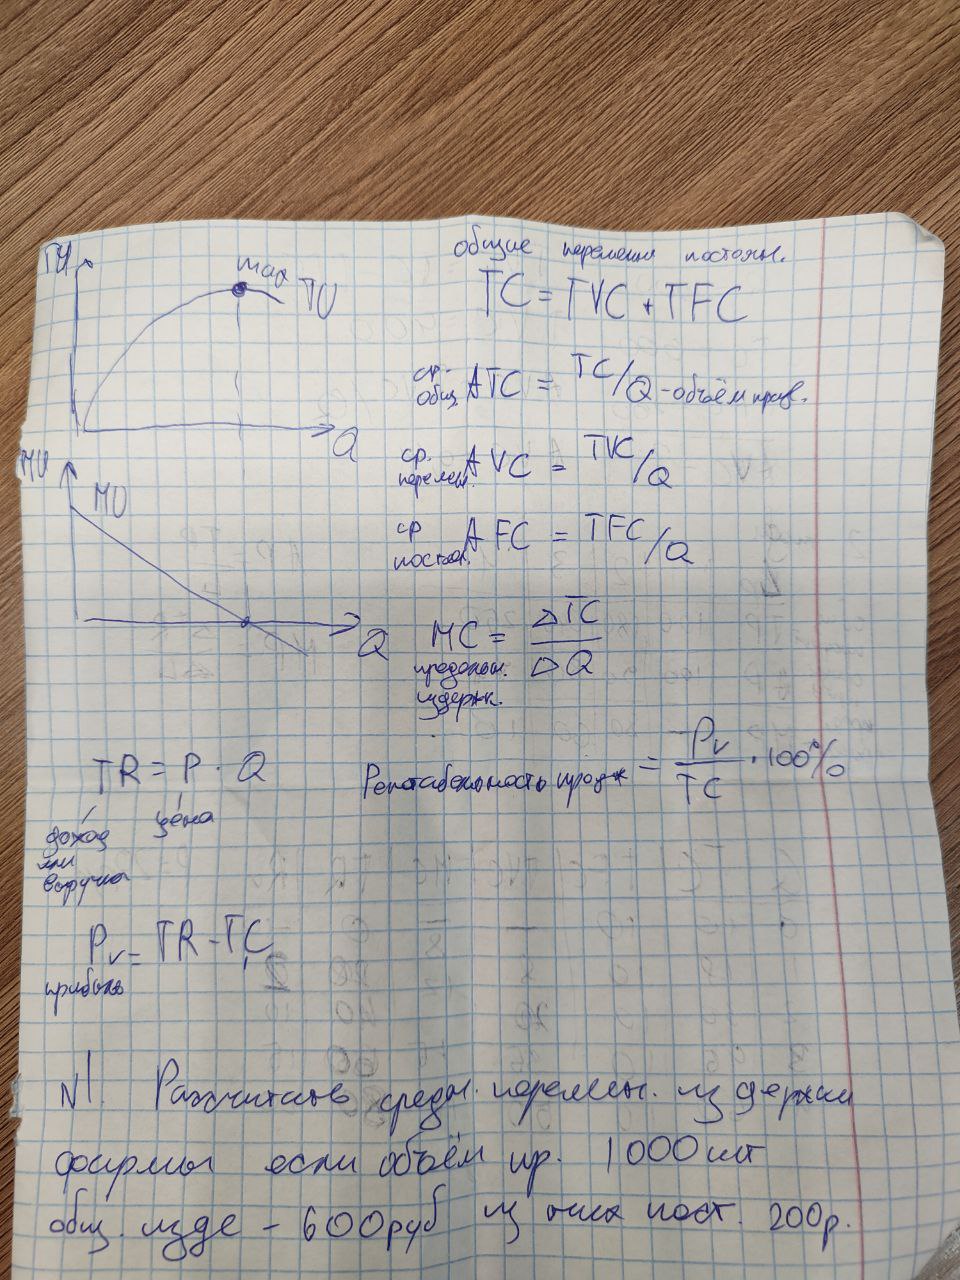 TU
max
TU
Q
MU
MU
Q
общие перемен постоян.
TC = TVC + TFC
ср. общ. ATC = TC/Q - объём произв.
ср. перемен. AVC = TVC/Q
ср постоян. AFC = TFC/Q
MC = ΔTC/ΔQ
предельн. издержк.
TR = P · Q
доход или выручка
цена
Рентабельность прод = Pr/TC · 100%
Pr = TR - TC
прибыль
N1. Рассчитать средн. перемен. издержки
фирмы если объём пр. 1000 шт
общ. изде - 600 руб из них пост. 200р.